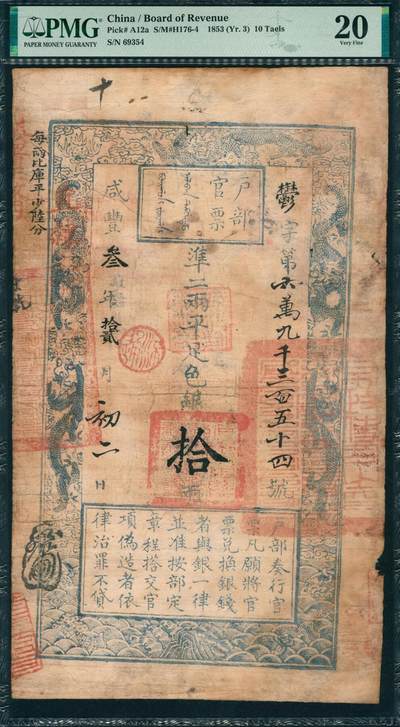 PMG
PAPER MONEY GUARANTY
China / Board of Revenue
Pick# A12a S/M#H176-4 1853 (Yr. 3) 10 Taels
S/N 69354
20
Very Fine
十
每兩比庫平少陸分
戶部
官票
鬱字第六萬九千三百五十四號
準二兩平足色銀
拾
兩
咸豐叁年拾貳月初二日
戶部奏行官
票凡願將官
票兌換銀錢
者與銀一律
並准按部定
章程搭交官
項偽造者依
律治罪不貸